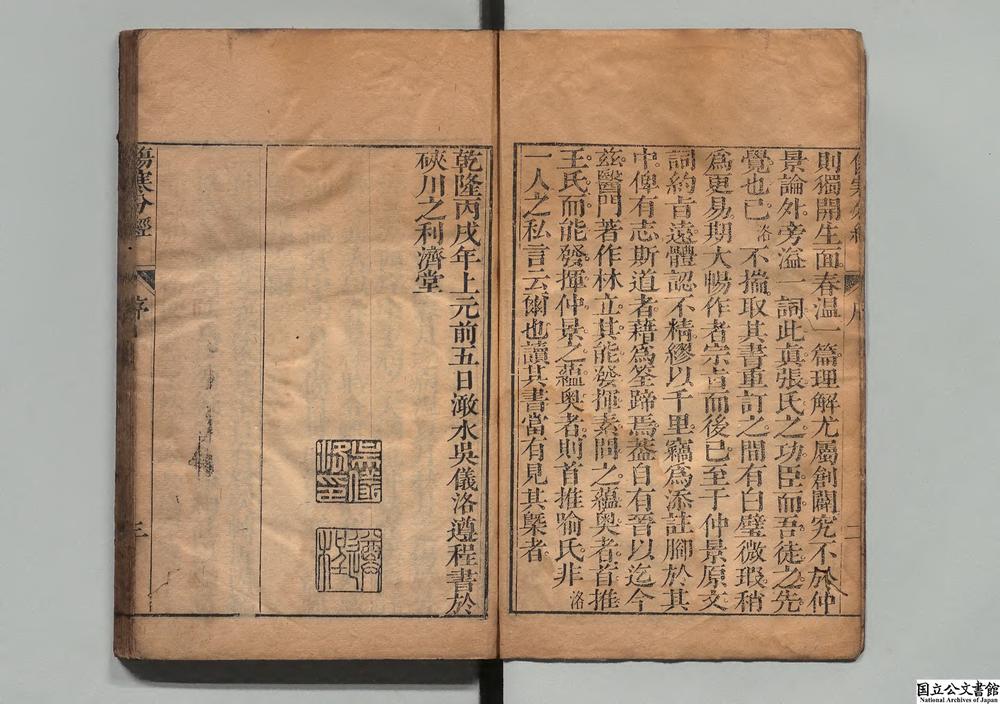 則獨開生面春溫一篇理解尤屬創闢究不於仲
景論外旁溢一詞此眞張氏之功臣而吾徒之先
覺也已洛不揣取其書重訂之間有白璧微瑕稍
爲更易期大暢作者宗旨而後已至于仲景原文
詞約旨遠體認不精繆以千里竊爲添註腳於其
中俾有志斯道者藉爲筌蹄焉蓋自有晉以迄今
茲醫門著作林立其能發揮素問之蘊奧者首推
王氏而能發揮仲景之蘊奧者則首推喻氏非洛
一人之私言云爾也讀其書當有見其槩者
乾隆丙戌年上元前五日澉水吳儀洛遵程書於
硤川之利濟堂
吳儀洛印
遵程
傷寒分經
序
三
国立公文書館
National Archives of Japan